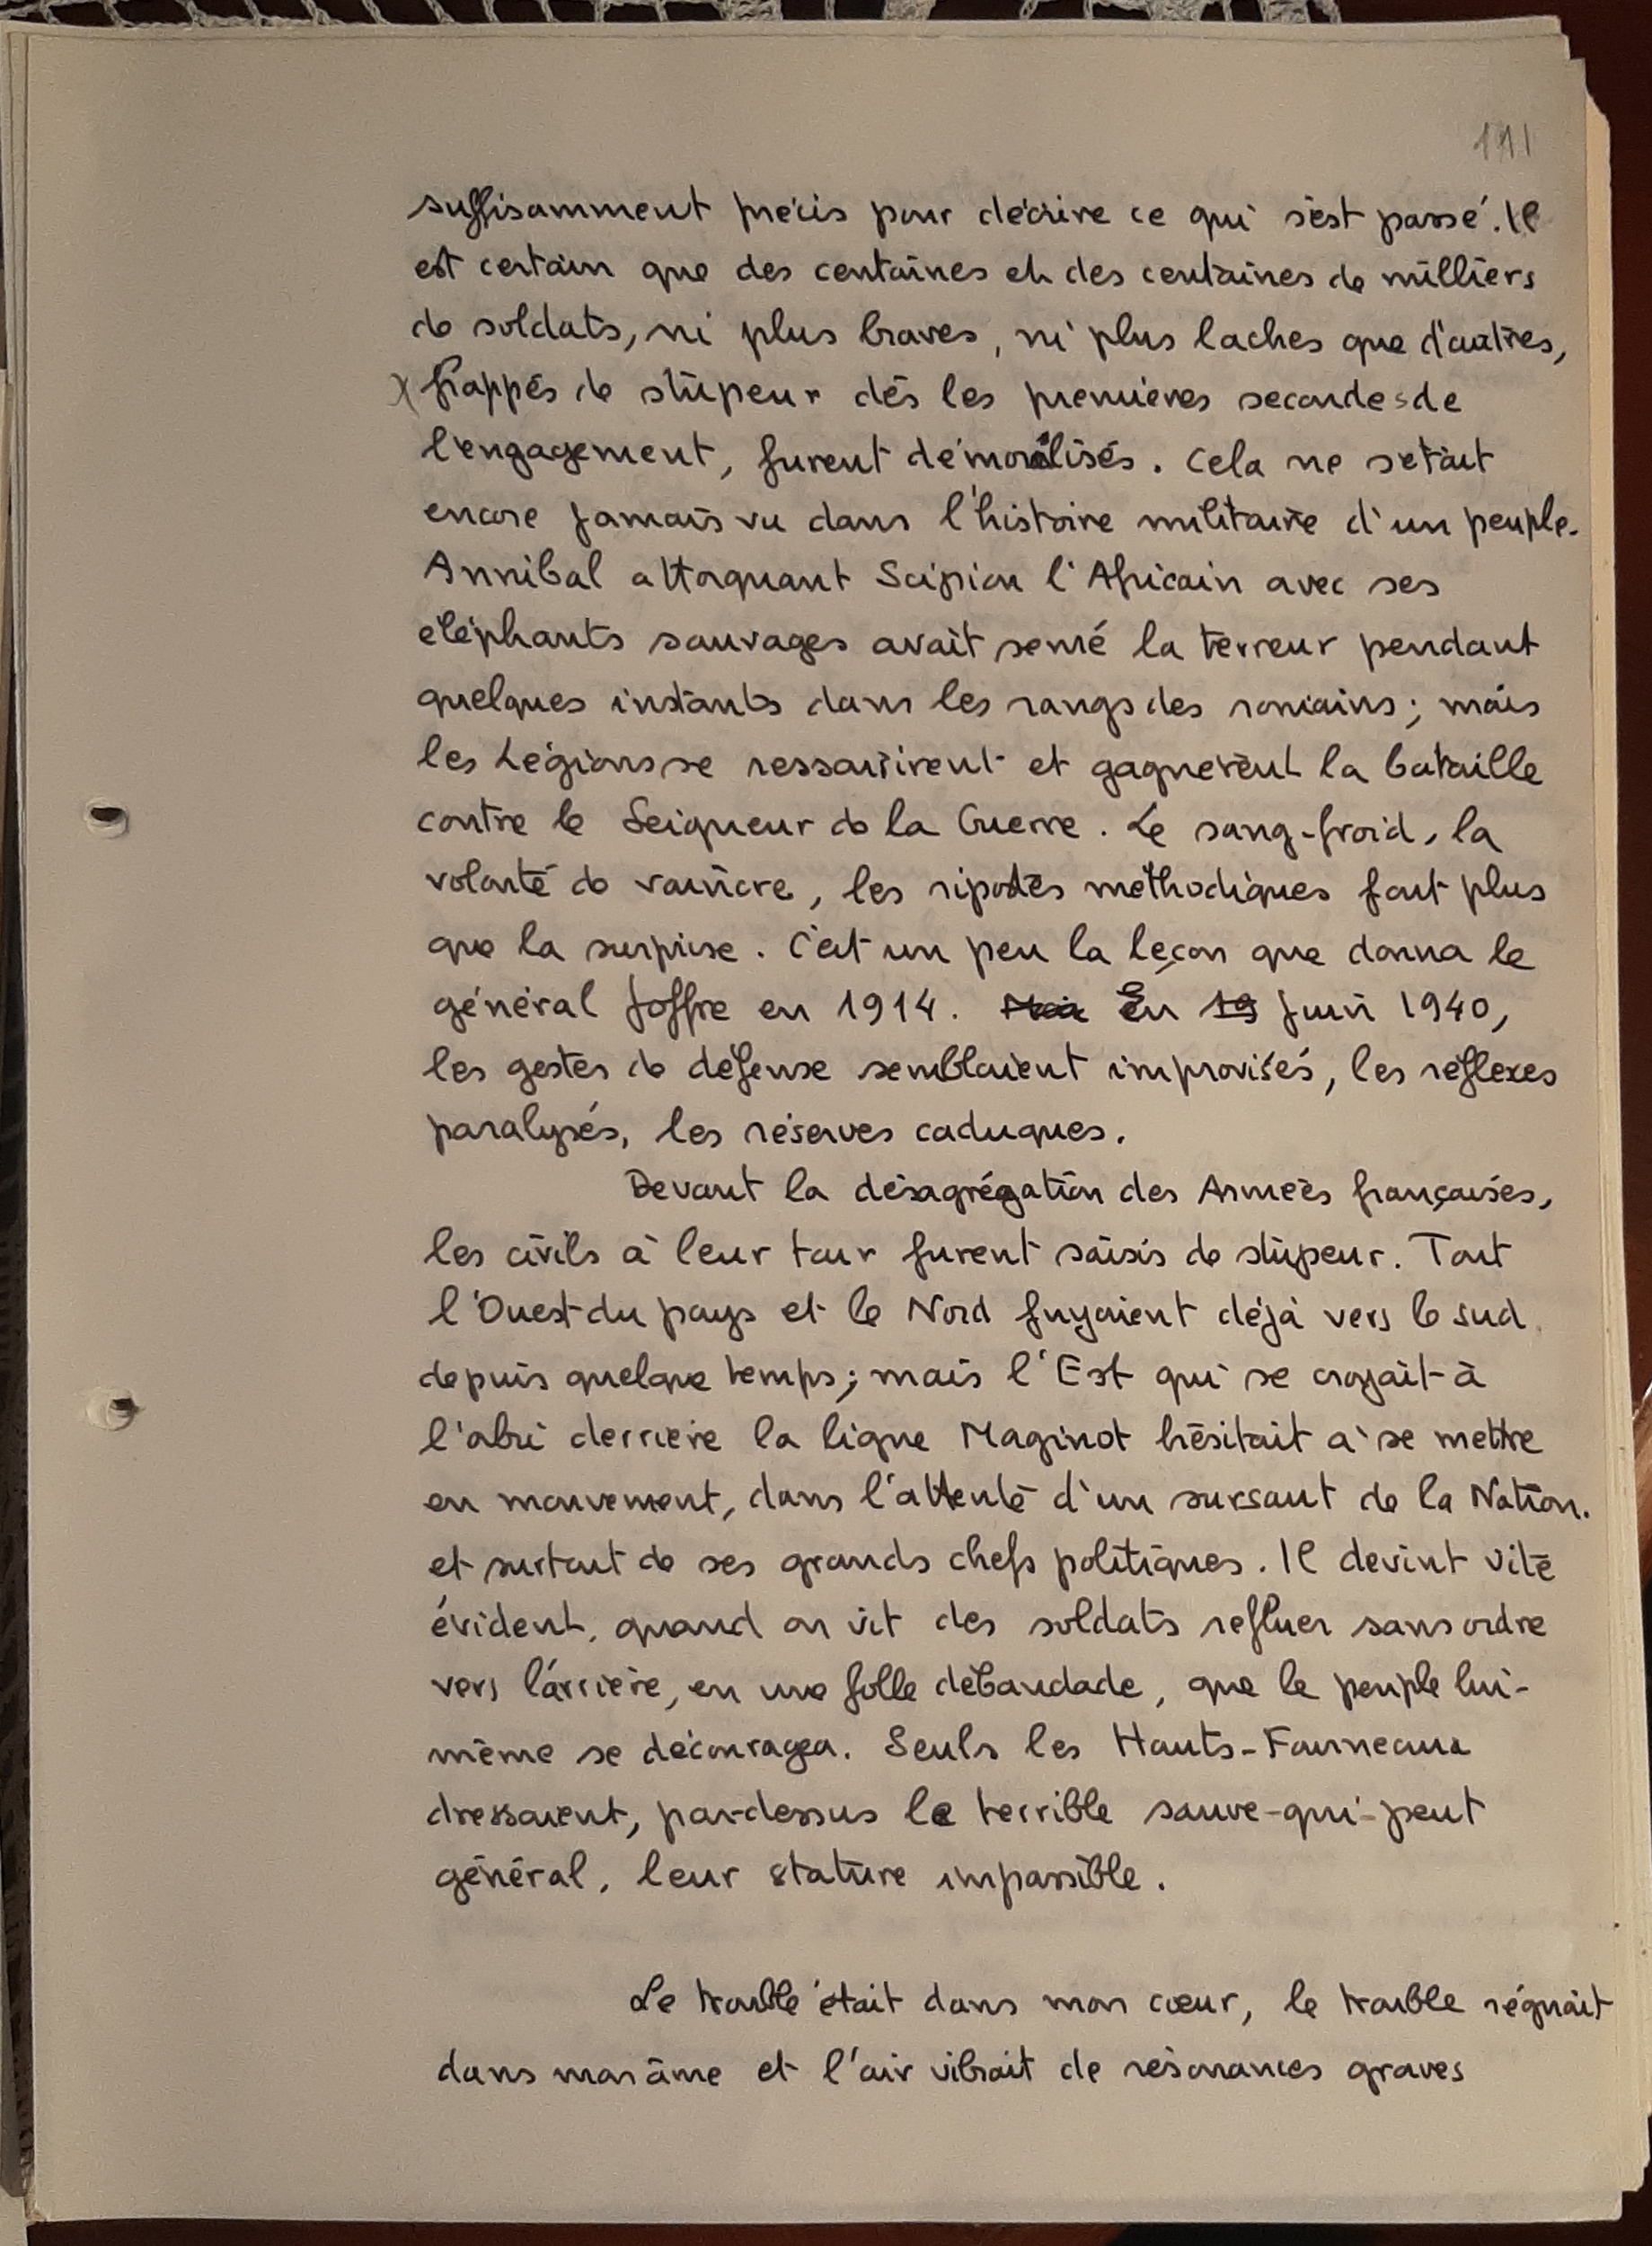 111
suffisamment précis pour décrire ce qui s'est passé. Il
est certain que des centaines et des centaines de milliers
de soldats, ni plus braves, ni plus laches que d'autres,
frappés de stupeur dés les premières secondes de
l'engagement, furent démoralisés. Cela ne s'était
encore jamais vu dans l'histoire militaire d'un peuple.
Annibal attaquant Scipion l'Africain avec ses
éléphants sauvages avait semé la terreur pendant
quelques instants dans les rangs des romains ; mais
les Légions se ressaisirent et gagnèrent la bataille
contre le Seigneur de la Guerre. Le sang-froid, la
volonté de vaincre, les ripostes méthodiques font plus
que la surprise. C'est un peu la leçon que donna le
général Joffre en 1914. En 19 Juin 1940,
les gestes de défense semblaient improvisés, les réflexes
paralysés, les réserves caduques.
Devant la désagrégation des Armées françaises,
les civils à leur tour furent saisis de stupeur. Tout
l'Ouest du pays et le Nord fuyaient déjà vers le sud
depuis quelque temps ; mais l'Est qui se croyait à
l'abri derrière la ligne Maginot hésitait à se mettre
en mouvement, dans l'attente d'un sursaut de la Nation.
et surtout de ses grands chefs politiques. Il devint vite
évident, quand on vit des soldats refluer sans ordre
vers l'arrière, en une folle débandade, que le peuple lui-
même se découragea. Seuls les Hauts-Fourneaux
dressaient, par-dessus le terrible sauve-qui-peut
général, leur stature impassible.
Le trouble était dans mon cœur, le trouble régnait
dans mon âme et l'air vibrait de résonances graves